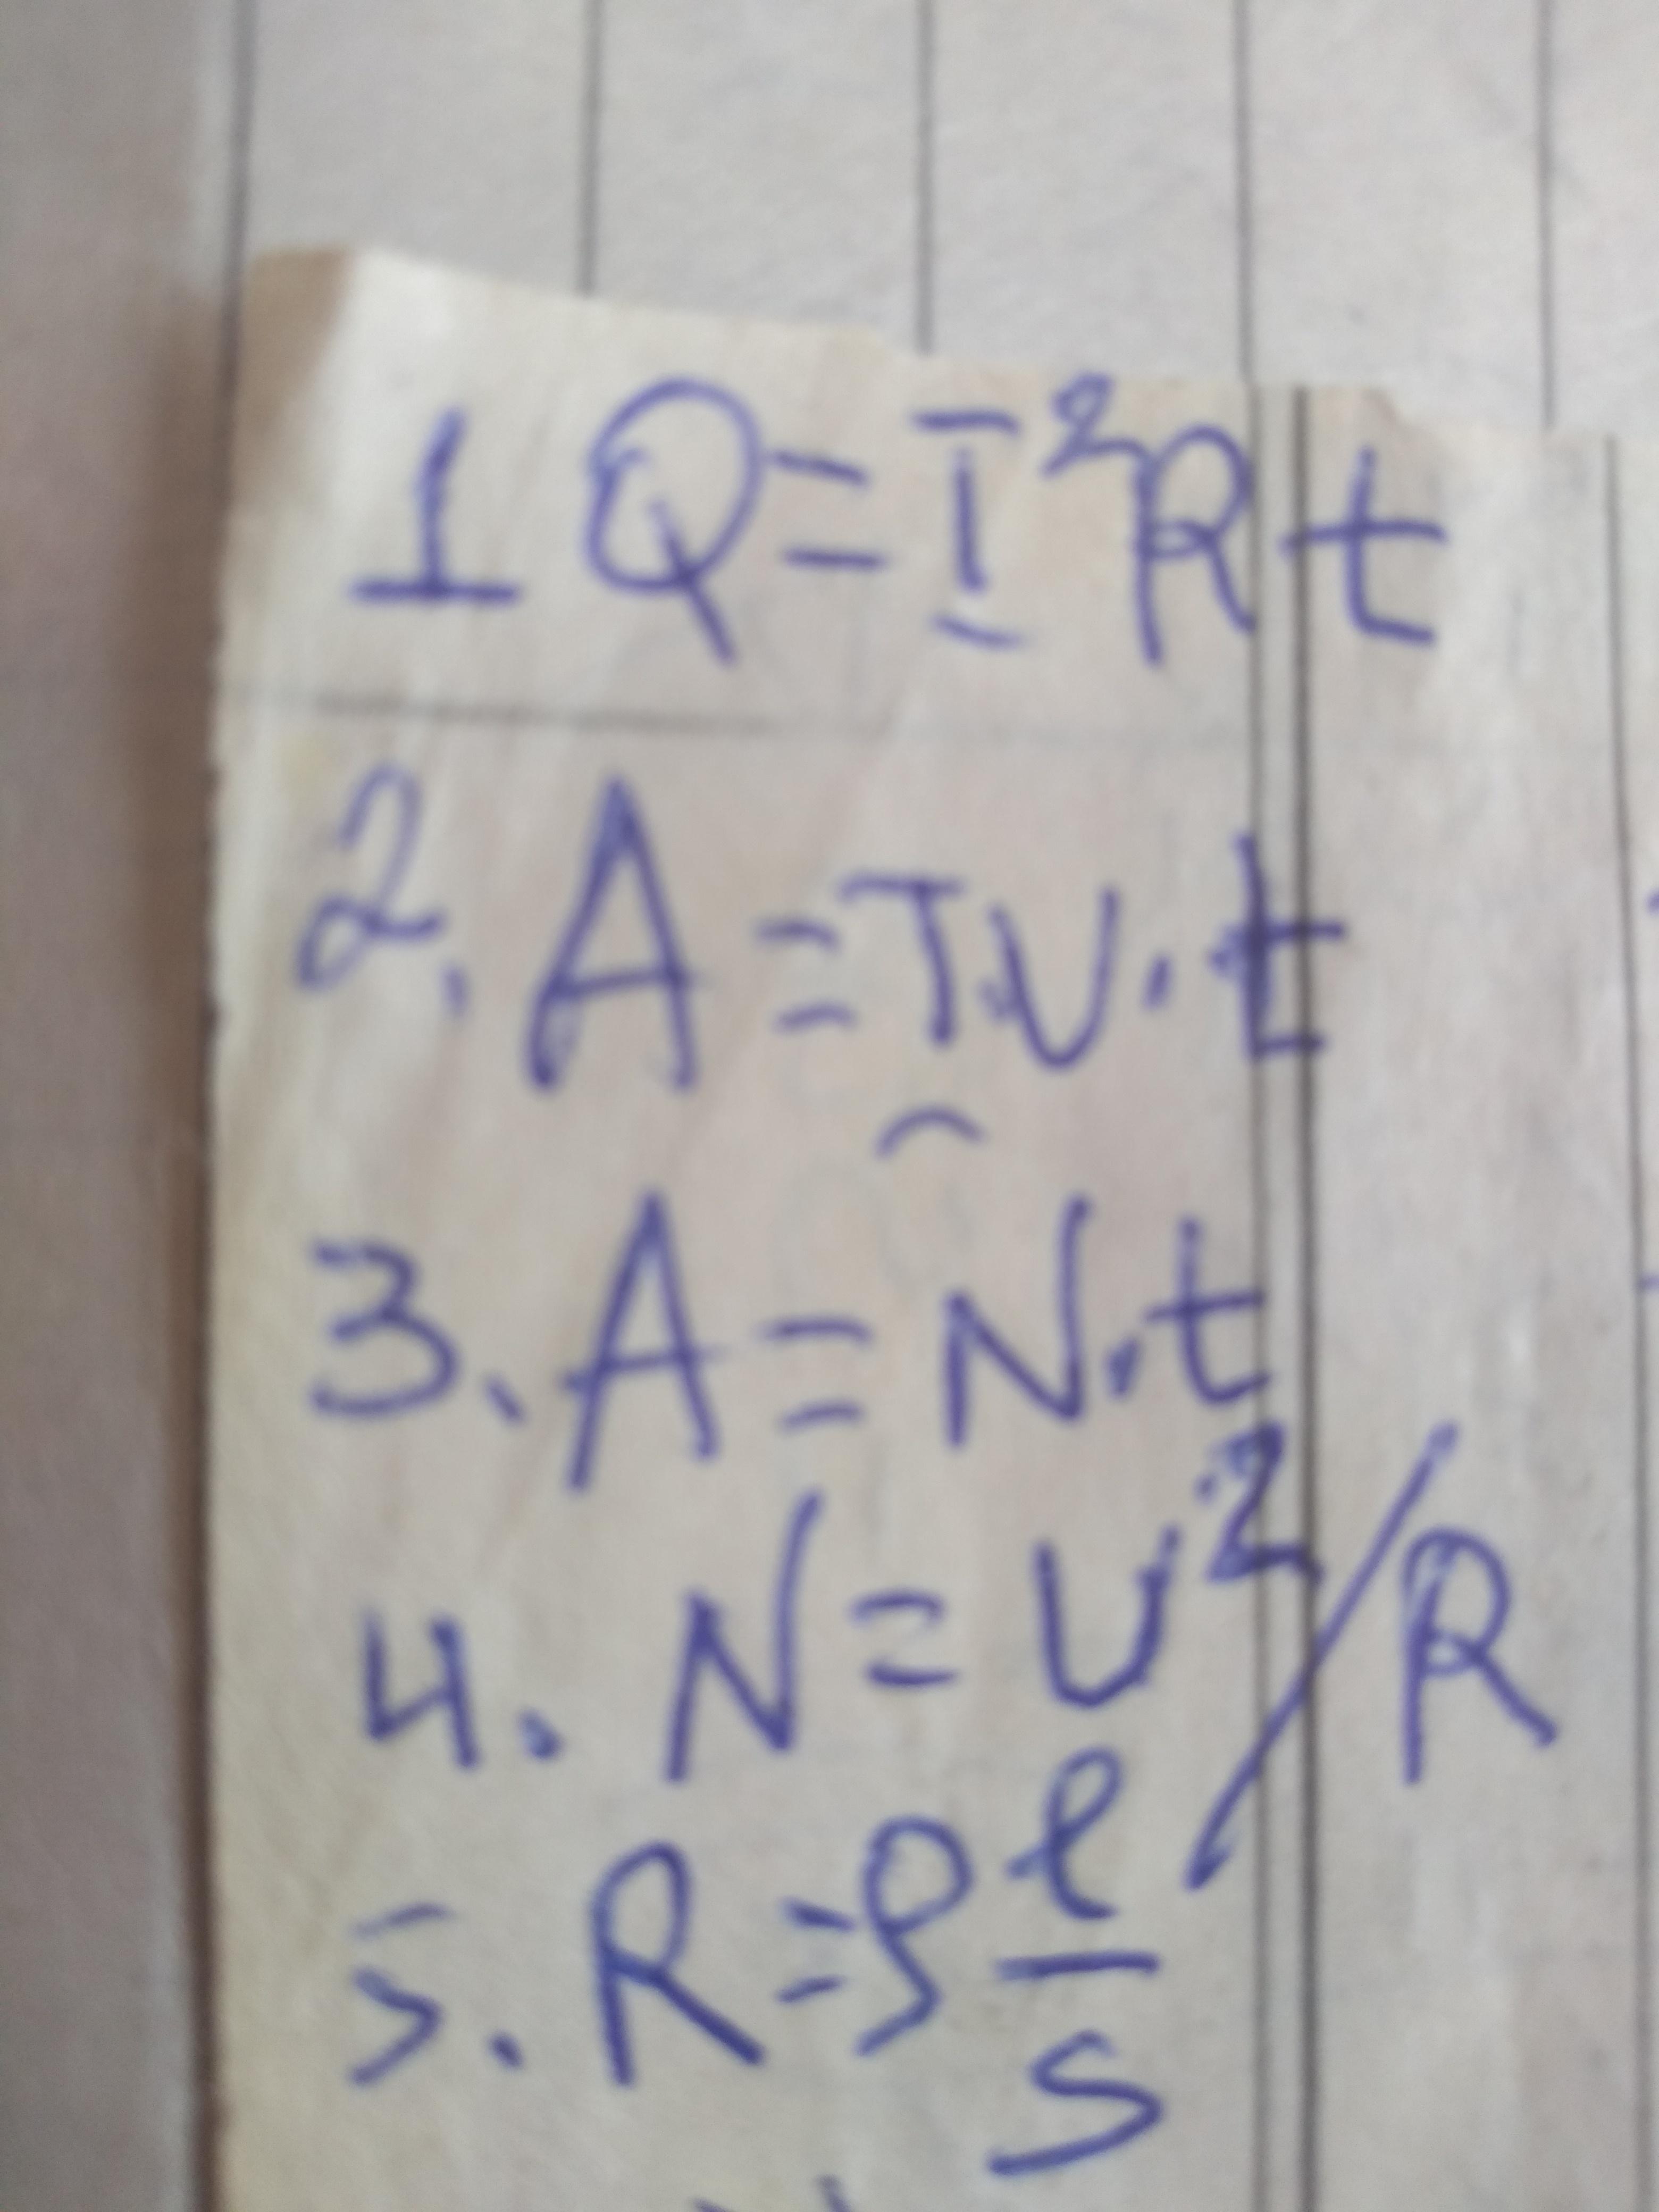 1 Q=I²Rt
2. A=IU·t
3. A=N·t
4. N=U²/R
5. R=ρ l/s